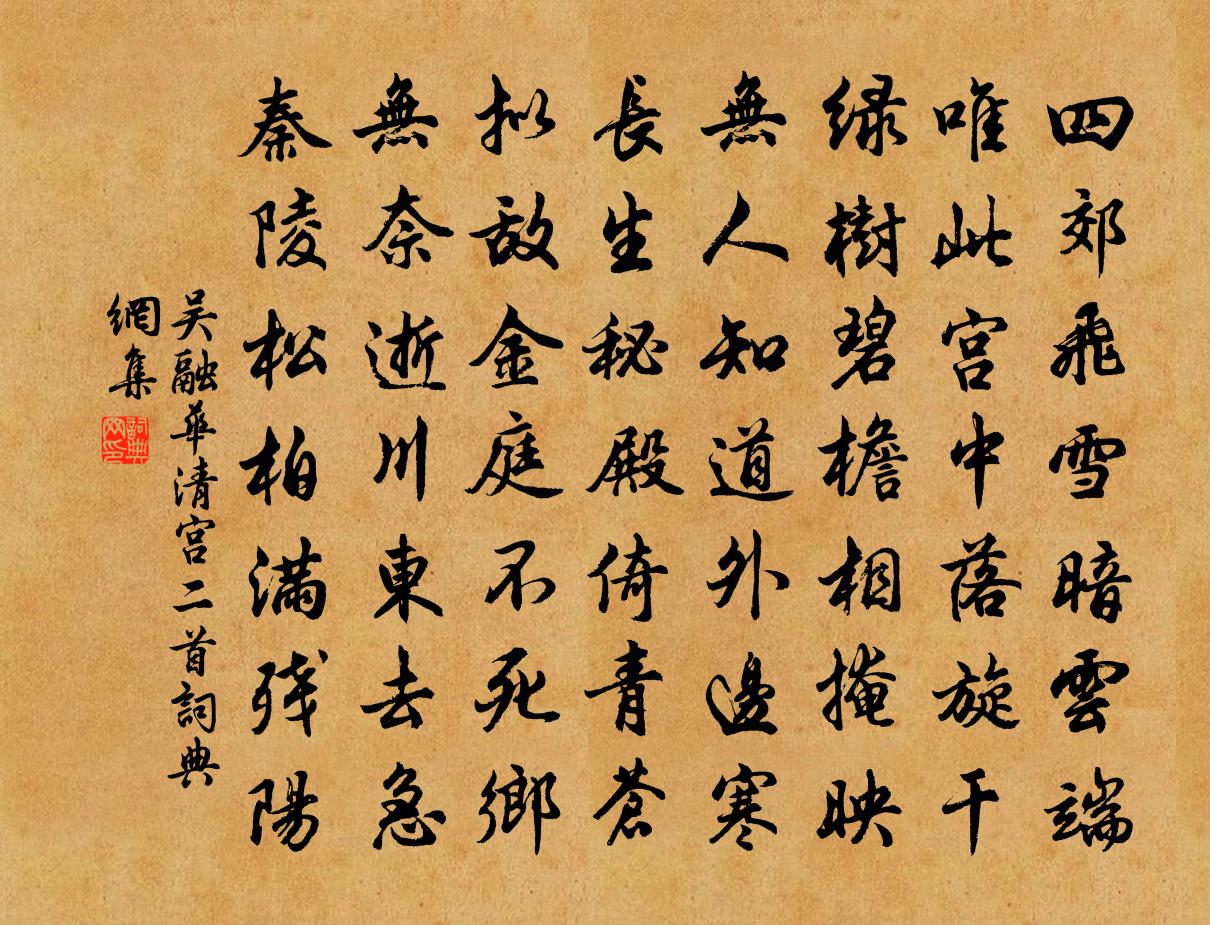 四郊飛雪暗雲端
唯此宫中落旋干
緑樹碧檐相掩映
無人知道外邊寒
長生秘殿倚青蒼
拟敌金庭不死鄉
無奈逝川東去急
秦陵松柏滿殘陽
吴融華清宫二首詞典
網集
詞典
网印